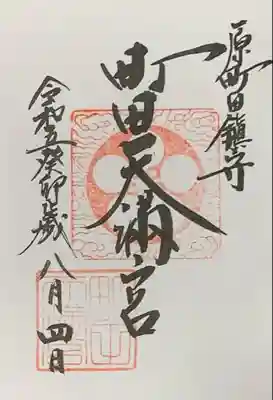 原町田鎮守
町田天満宮
令和五癸卯歳八月四日